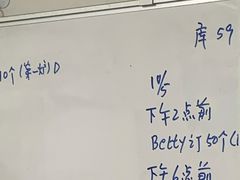 库 59
10个(第一炉)D
10/5
下午2点前
Betty订50个(1
下午6点前